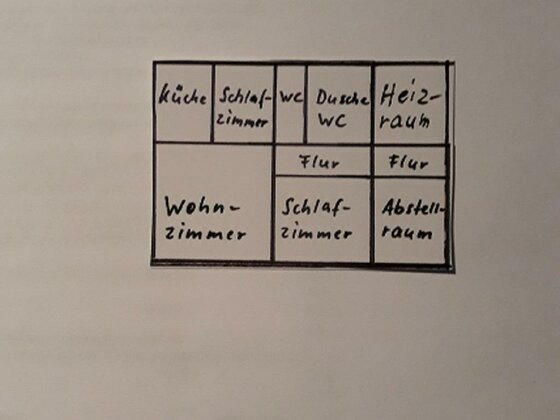 Küche
Schlaf-
zimmer
WC
Dusche
WC
Heiz-
raum
Flur
Flur
Wohn-
zimmer
Schlaf-
zimmer
Abstell-
raum